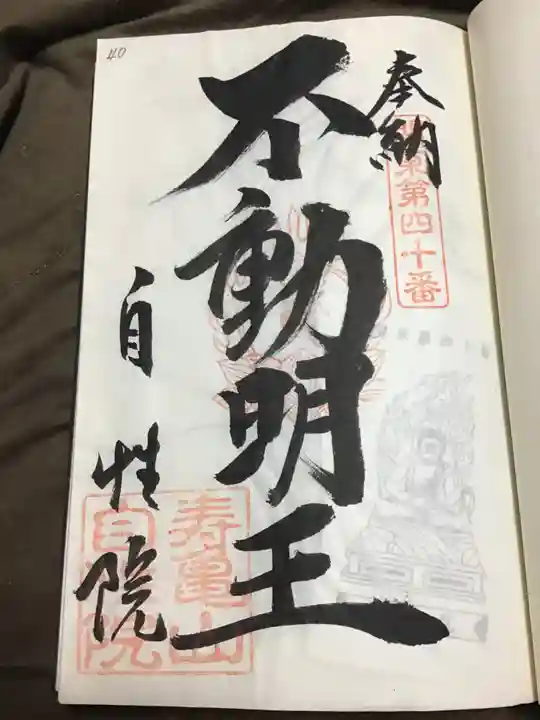 40
奉納
第四十番
不動明王
自性院
寿亀山
自性院